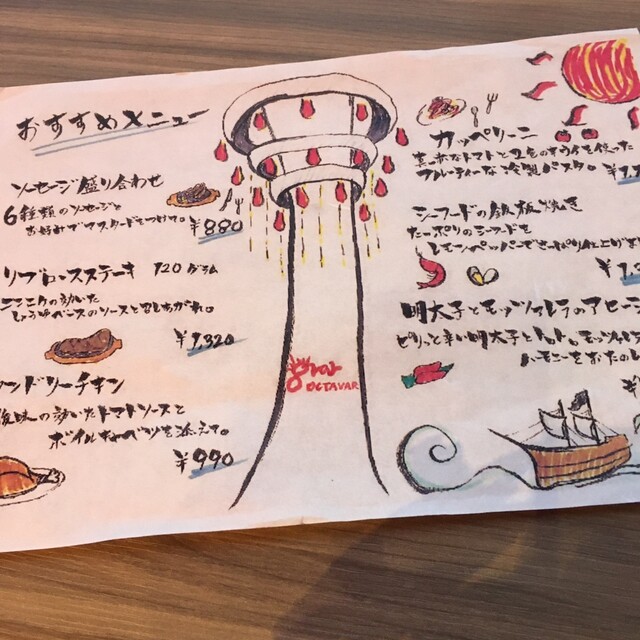 おすすめメニュー
ソーセージ盛り合わせ
6種類のソーセージと
お好みでマスタードをつけて。
¥880
リブロースステーキ 120グラム
ニンニクの効いた
しょうゆベースのソースと召しあがれ。
¥1,320
ンドリーチキン
酸味の効いたトマトソースと
ボイルキャベツを添えて。
¥990
bar
OCTAVAR
カッペリーニ
真っ赤なトマトと
を使った
フルーティーな冷製パスタ。
シーフードの鉄板焼き
たっぷりのシーフードを
レモンペッパーでさっぱり仕上げま
明太子とモッツァレラのアヒー
ピリッと辛い明太子とトロトロモッツァレラ
ハーモニーをおたのし